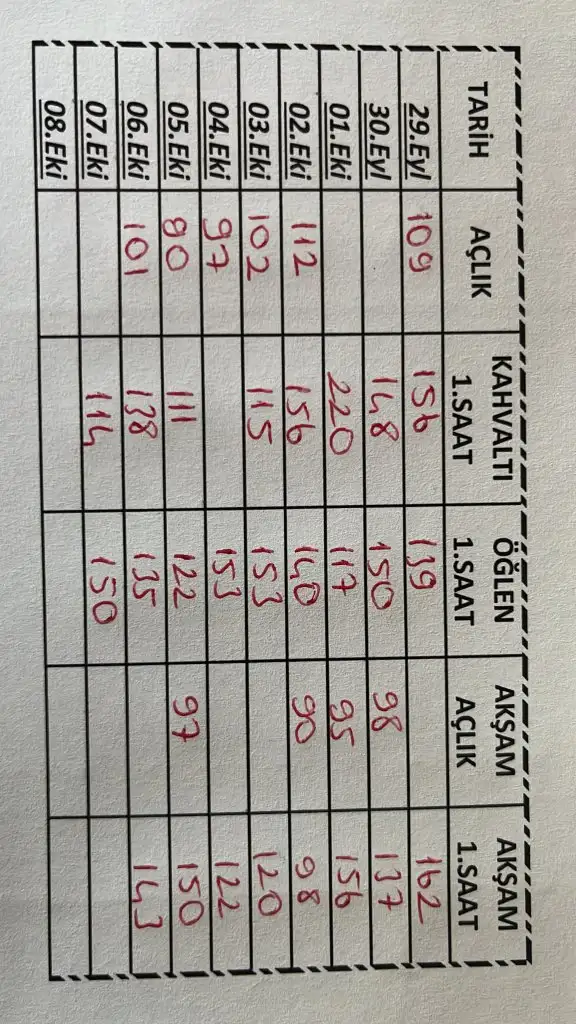 TARİH AÇLIK KAHVALTI 1.SAAT ÖĞLEN 1.SAAT AKŞAM AÇLIK AKŞAM 1.SAAT
29.Eyl 109 156 139 162
30.Eyl 148 150 98 137
01.Eki 220 117 95 156
02.Eki 112 156 140 90 98
03.Eki 102 115 153 120
04.Eki 97 153 122
05.Eki 90 111 122 97 150
06.Eki 101 138 135 143
07.Eki 114 150
08.Eki